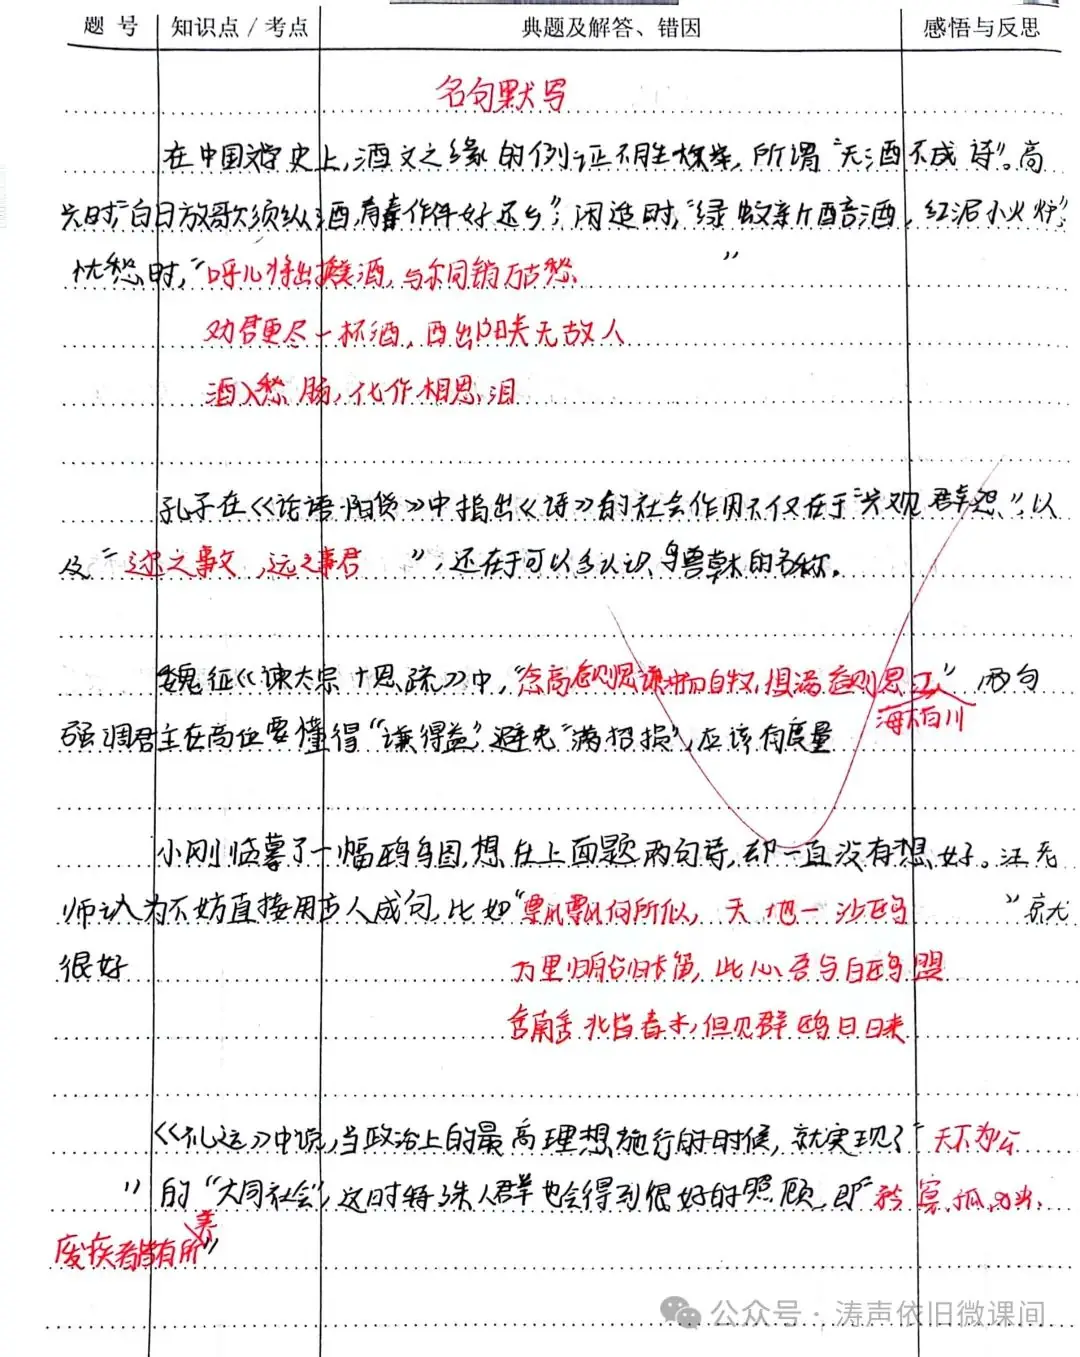 题 号 知识点 / 考点 典题及解答、错因 感悟与反思
名句默写
在中国文学史上,酒文之缘的例证不胜枚举,所谓“无酒不成诗”。高
兴时“白日放歌须纵酒,青春作伴好还乡”,闲适时,“绿蚁新醅酒,红泥小火炉”,
忧愁时,“呼儿将出换美酒,与尔同销万古愁 ”
劝君更尽一杯酒,西出阳关无故人
酒入愁肠,化作相思泪
孔子在《论语·阳货》中指出《诗》的社会作用不仅在于“兴观群怨”,以
及“迩之事父,远之事君 ”,还在于可以多认识鸟兽草木的名称。
魏征《谏太宗十思疏》中,“念高危则思谦冲而自牧,惧满盈则思江” 两句
海下百川
强调君主在高位要懂得“谦得益”避免“满招损”,应该有度量
小刚临摹了一幅鸥鸟图,想在上面题两句诗,却一直没有想好。汪老
师认为不妨直接用古人成句,比如“飘飘何所似,天地一沙鸥 ”就
很好 万里归船弄长笛,此心吾与白鸥盟
舍南舍北皆春水,但见群鸥日日来
《礼运》中说,当政治上的最高理想施行的时候,就实现了“天下为公
”的“大同社会”,这时特殊人群也会得到很好的照顾,即“矜、寡、孤、独、
废疾者皆有所养”
公众号 · 涛声依旧微课间